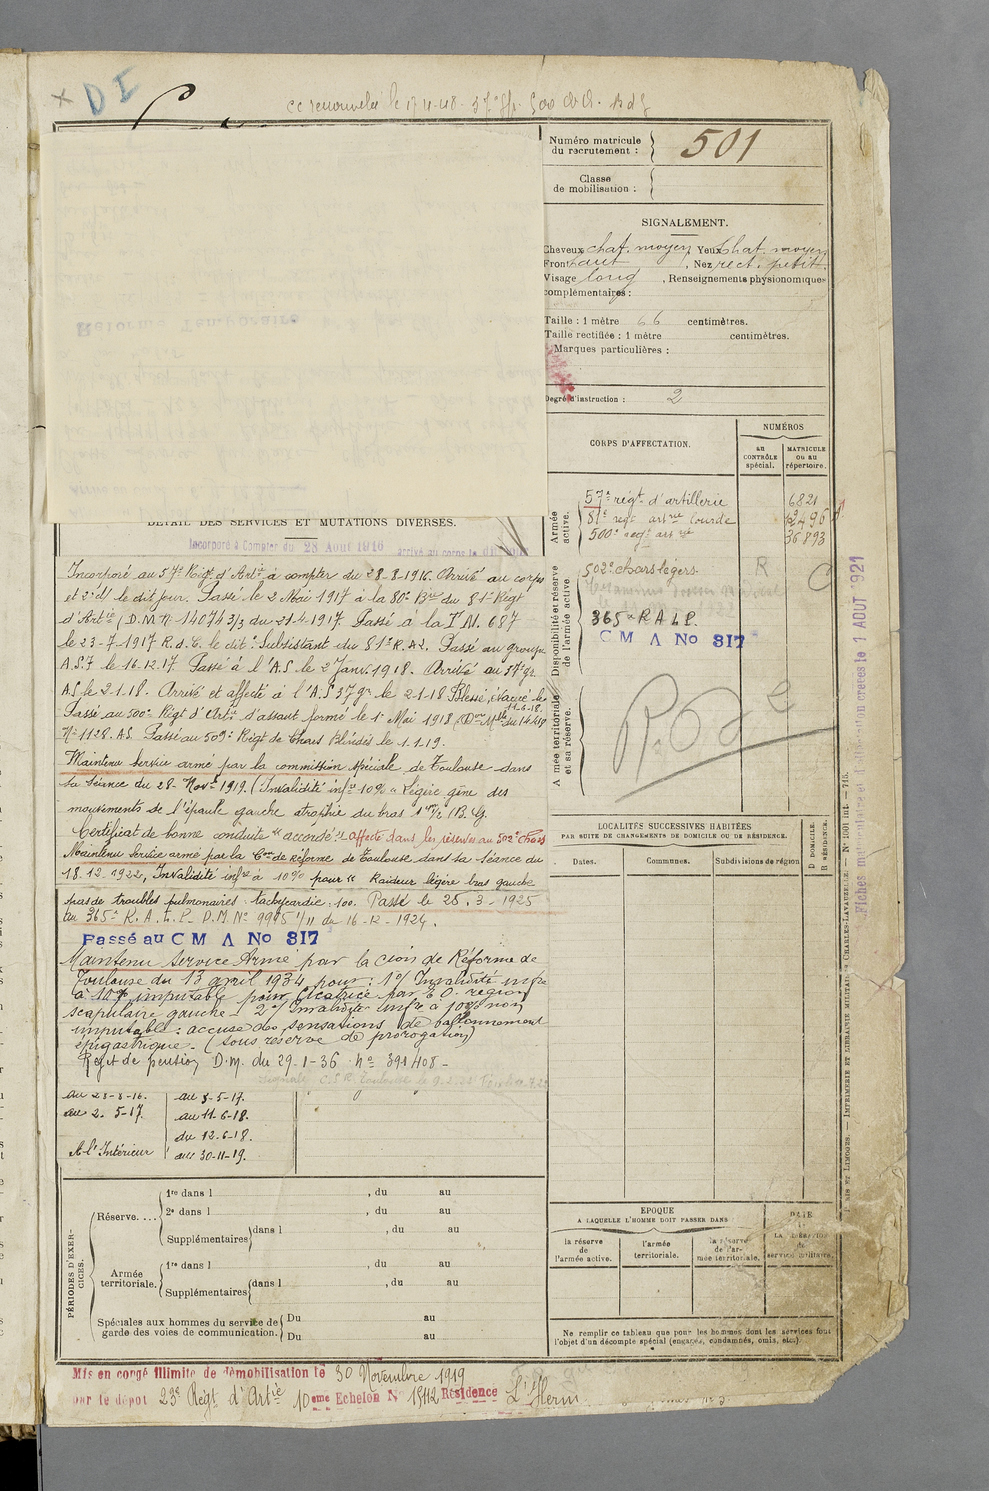 DI
cc renouvelée le 17-11-48
Numéro matricule
du recrutement :
501
Classe
de mobilisation :
SIGNALEMENT.
Cheveux chat. moyen, Yeux chat. moyen
Front haut, Nez rect. petit.
Visage long, Renseignements physionomiques
complémentaires :
Taille : 1 mètre 66 centimètres.
Taille rectifiée : 1 mètre centimètres.
Marques particulières :
Degré d'instruction : 2
CORPS D'AFFECTATION.
NUMÉROS
au
CONTRÔLE
spécial.
MATRICULE
ou au
répertoire.
Armée
active.
57e régt d'artillerie 6821
81e regt artrie lourde 12496
500e regt artrie 36893
Disponibilité et réserve
de l'armée active.
502e chars légers. R
365e R A L P.
C M A No 817
Armée territoriale
et sa réserve.
DÉTAIL DES SERVICES ET MUTATIONS DIVERSES.
Incorporé à Compter du 28 Août 1916 arrivé au corps le dit jour
Incorporé au 57e Régt d'Artie à compter du 28-8-1916. Arrivé au corps
et 2e cl le dit jour. Passé le 2 Mai 1917 à la 80e Brie du 81e Régt
d'Artie (D.M. No 14074 3/3 du 21-4-1917. Passé à la 687
le 23-7-1917 R.d.C. le dit. Subsistant du 81e R.A.L. Passé au groupe
A.S.7 le 16.12.17. Passé à l'A.S. le 2 Janv. 1918. Arrivé au 37e gr.
A.S. le 2-1-18. Arrivé et affecté à l'A.S 37 gr. le 2-1-18 Blessé, évacué le
11-6-18.
Passé au 500e Régt d'Artie d'assaut formé le 1er Mai 1918 (Don Mlle du 14-4-18
No 1128. AS. Passé au 509e Régt de Chars Blindés le 1.1.19.
Maintenu service armé par la commission spéciale de Toulouse dans
sa séance du 28 Novre 1919. (Invalidité infre 10% "Légère gêne des
mouvements de l'épaule gauche atrophie du bras 1 c/m 1/2 B. G.
Certificat de bonne conduite "accordé" affecté dans les réserves au 502e Chars
Maintenu service armé par la Con de Réforme de Toulouse dans sa séance du
18.12.1922, Invalidité infre à 10% pour "Raideur légère bras gauche
pas de troubles pulmonaires - tachycardie : 100. Passé le 25.3-1925
au 365e R.A.L.P. D.M. No 9905 1/11 du 16-12-1924.
Passé au C M A No 817
Maintenu Service Armé par la Cion de Réforme de
Toulouse du 13 avril 1934 pour : 1o/ Invalidité infre
à 10% imputable pour cicatrice par E.O. région
scapulaire gauche - 2o/ Invalidité infre à 10% non
imputable : accuse des sensations de ballonnement
épigastrique. (sous réserve de prorogation)
Rejet de pension D.M. du 29-1-36 No 391408 -
au 28-8-16. au 3-5-17.
au 2. 5-17. au 11-6-18.
du 12.6-18.
A l'Intérieur au 30-11-19.
LOCALITÉS SUCCESSIVES HABITÉES
PAR SUITE DE CHANGEMENTS DE DOMICILE OU DE RÉSIDENCE.
D DOMICILE.
R RÉSIDENCE.
Dates.
Communes.
Subdivisions de région
PÉRIODES D'EXERCICES.
Réserve....
1re dans l , du au
2e dans l , du au
Supplémentaires dans l , du au
Armée
territoriale.
1re dans l , du au
Supplémentaires dans l , du au
Spéciales aux hommes du service de
garde des voies de communication.
Du au
Du au
ÉPOQUE
A LAQUELLE L'HOMME DOIT PASSER DANS
la réserve
de
l'armée active.
l'armée
territoriale.
la réserve
de l'ar-
mée territoriale.
DATE
de
LA LIBÉRATION
du
service militaire.
Ne remplir ce tableau que pour les hommes dont les services font
l'objet d'un décompte spécial (engagés, condamnés, omis, etc.).
Mis en congé illimité de démobilisation le 30 Novembre 1919
par le dépôt 23e Régt d'Artie 10eme Echelon No 1942 Résidence L'Herm
Fiches matriculaire et de mobilisation créées le 1 AOUT 1921
PARIS ET LIMOGES. — IMPRIMERIE ET LIBRAIRIE MILITAIRES CHARLES-LAVAUZELLE. — No 1001 int. — 715.